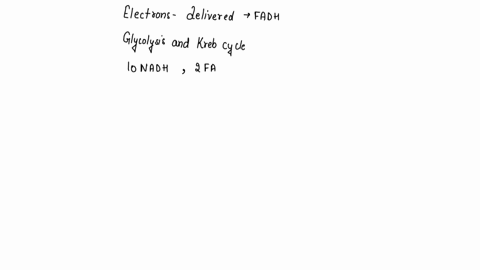 Electrons- delivered → FADH
Glycolysis and Kreb cycle
10 NADH , 2 FA